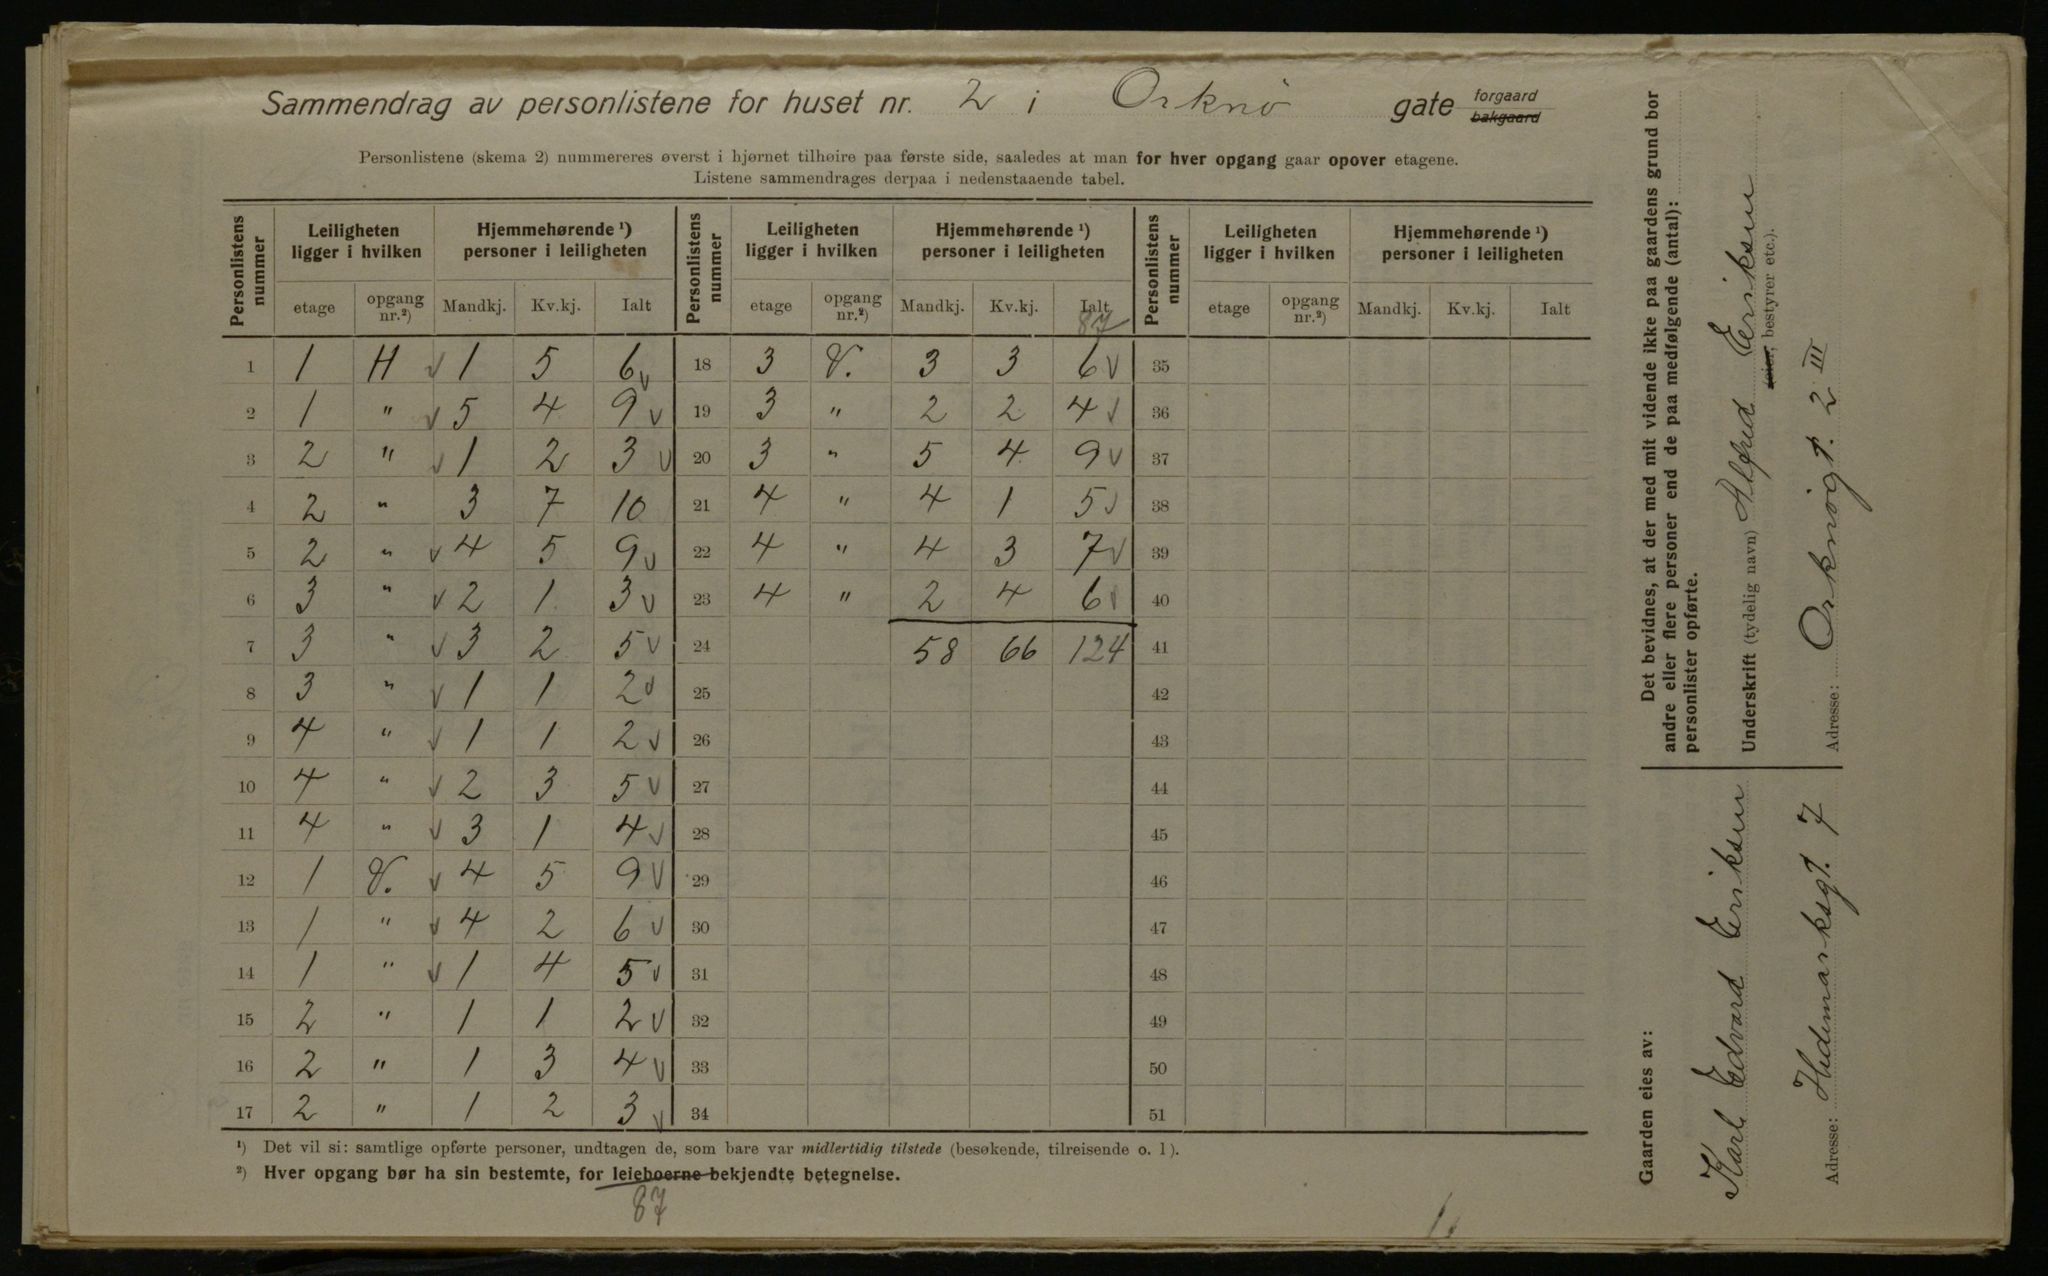 Sammendrag av personlistene for huset nr. 2 i Orknö gate forgaard bakgaard
Personlistene (skema 2) nummereres øverst i hjørnet tilhøire paa første side, saaledes at man for hver opgang gaar opover etagene.
Listene sammendrages derpaa i nedenstaaende tabel.
Personlistens nummer | Leiligheten ligger i hvilken | Hjemmehørende ¹) personer i leiligheten | Personlistens nummer | Leiligheten ligger i hvilken | Hjemmehørende ¹) personer i leiligheten | Personlistens nummer | Leiligheten ligger i hvilken | Hjemmehørende ¹) personer i leiligheten
etage | opgang nr.²) | Mandkj. | Kv.kj. | Ialt | etage | opgang nr.²) | Mandkj. | Kv.kj. | Ialt | etage | opgang nr.²) | Mandkj. | Kv.kj. | Ialt
87
1 | 1 | H | √ 1 | 5 | 6 √ | 18 | 3 | V. | 3 | 3 | 6 √ | 35
2 | 1 | " | √ 5 | 4 | 9 √ | 19 | 3 | " | 2 | 2 | 4 √ | 36
3 | 2 | " | √ 1 | 2 | 3 √ | 20 | 3 | " | 5 | 4 | 9 √ | 37
4 | 2 | " | 3 | 7 | 10 | 21 | 4 | " | 4 | 1 | 5 √ | 38
5 | 2 | " | √ 4 | 5 | 9 √ | 22 | 4 | " | 4 | 3 | 7 √ | 39
6 | 3 | " | √ 2 | 1 | 3 √ | 23 | 4 | " | 2 | 4 | 6 √ | 40
7 | 3 | " | √ 3 | 2 | 5 √ | 24 | 58 | 66 | 124 | 41
8 | 3 | " | √ 1 | 1 | 2 √ | 25 | 42
9 | 4 | " | √ 1 | 1 | 2 √ | 26 | 43
10 | 4 | " | √ 2 | 3 | 5 √ | 27 | 44
11 | 4 | " | √ 3 | 1 | 4 √ | 28 | 45
12 | 1 | V. | √ 4 | 5 | 9 √ | 29 | 46
13 | 1 | " | √ 4 | 2 | 6 √ | 30 | 47
14 | 1 | " | √ 1 | 4 | 5 √ | 31 | 48
15 | 2 | " | 1 | 1 | 2 √ | 32 | 49
16 | 2 | " | 1 | 3 | 4 √ | 33 | 50
17 | 2 | " | 1 | 2 | 3 √ | 34 | 51
¹) Det vil si: samtlige opførte personer, undtagen de, som bare var midlertidig tilstede (besøkende, tilreisende o. l).
²) Hver opgang bør ha sin bestemte, for leieboerne bekjendte betegnelse.
87
Det bevidnes, at der med mit vidende ikke paa gaardens grund bor
andre eller flere personer end de paa medfølgende (antal):
personlister opførte.
Underskrift (tydelig navn) Alfred Eriksen
bestyrer etc.).
Adresse: Orknögt. 2 III
Gaarden eies av:
Karl Edvard Eriksen
Adresse: Hedemarksgt. 7